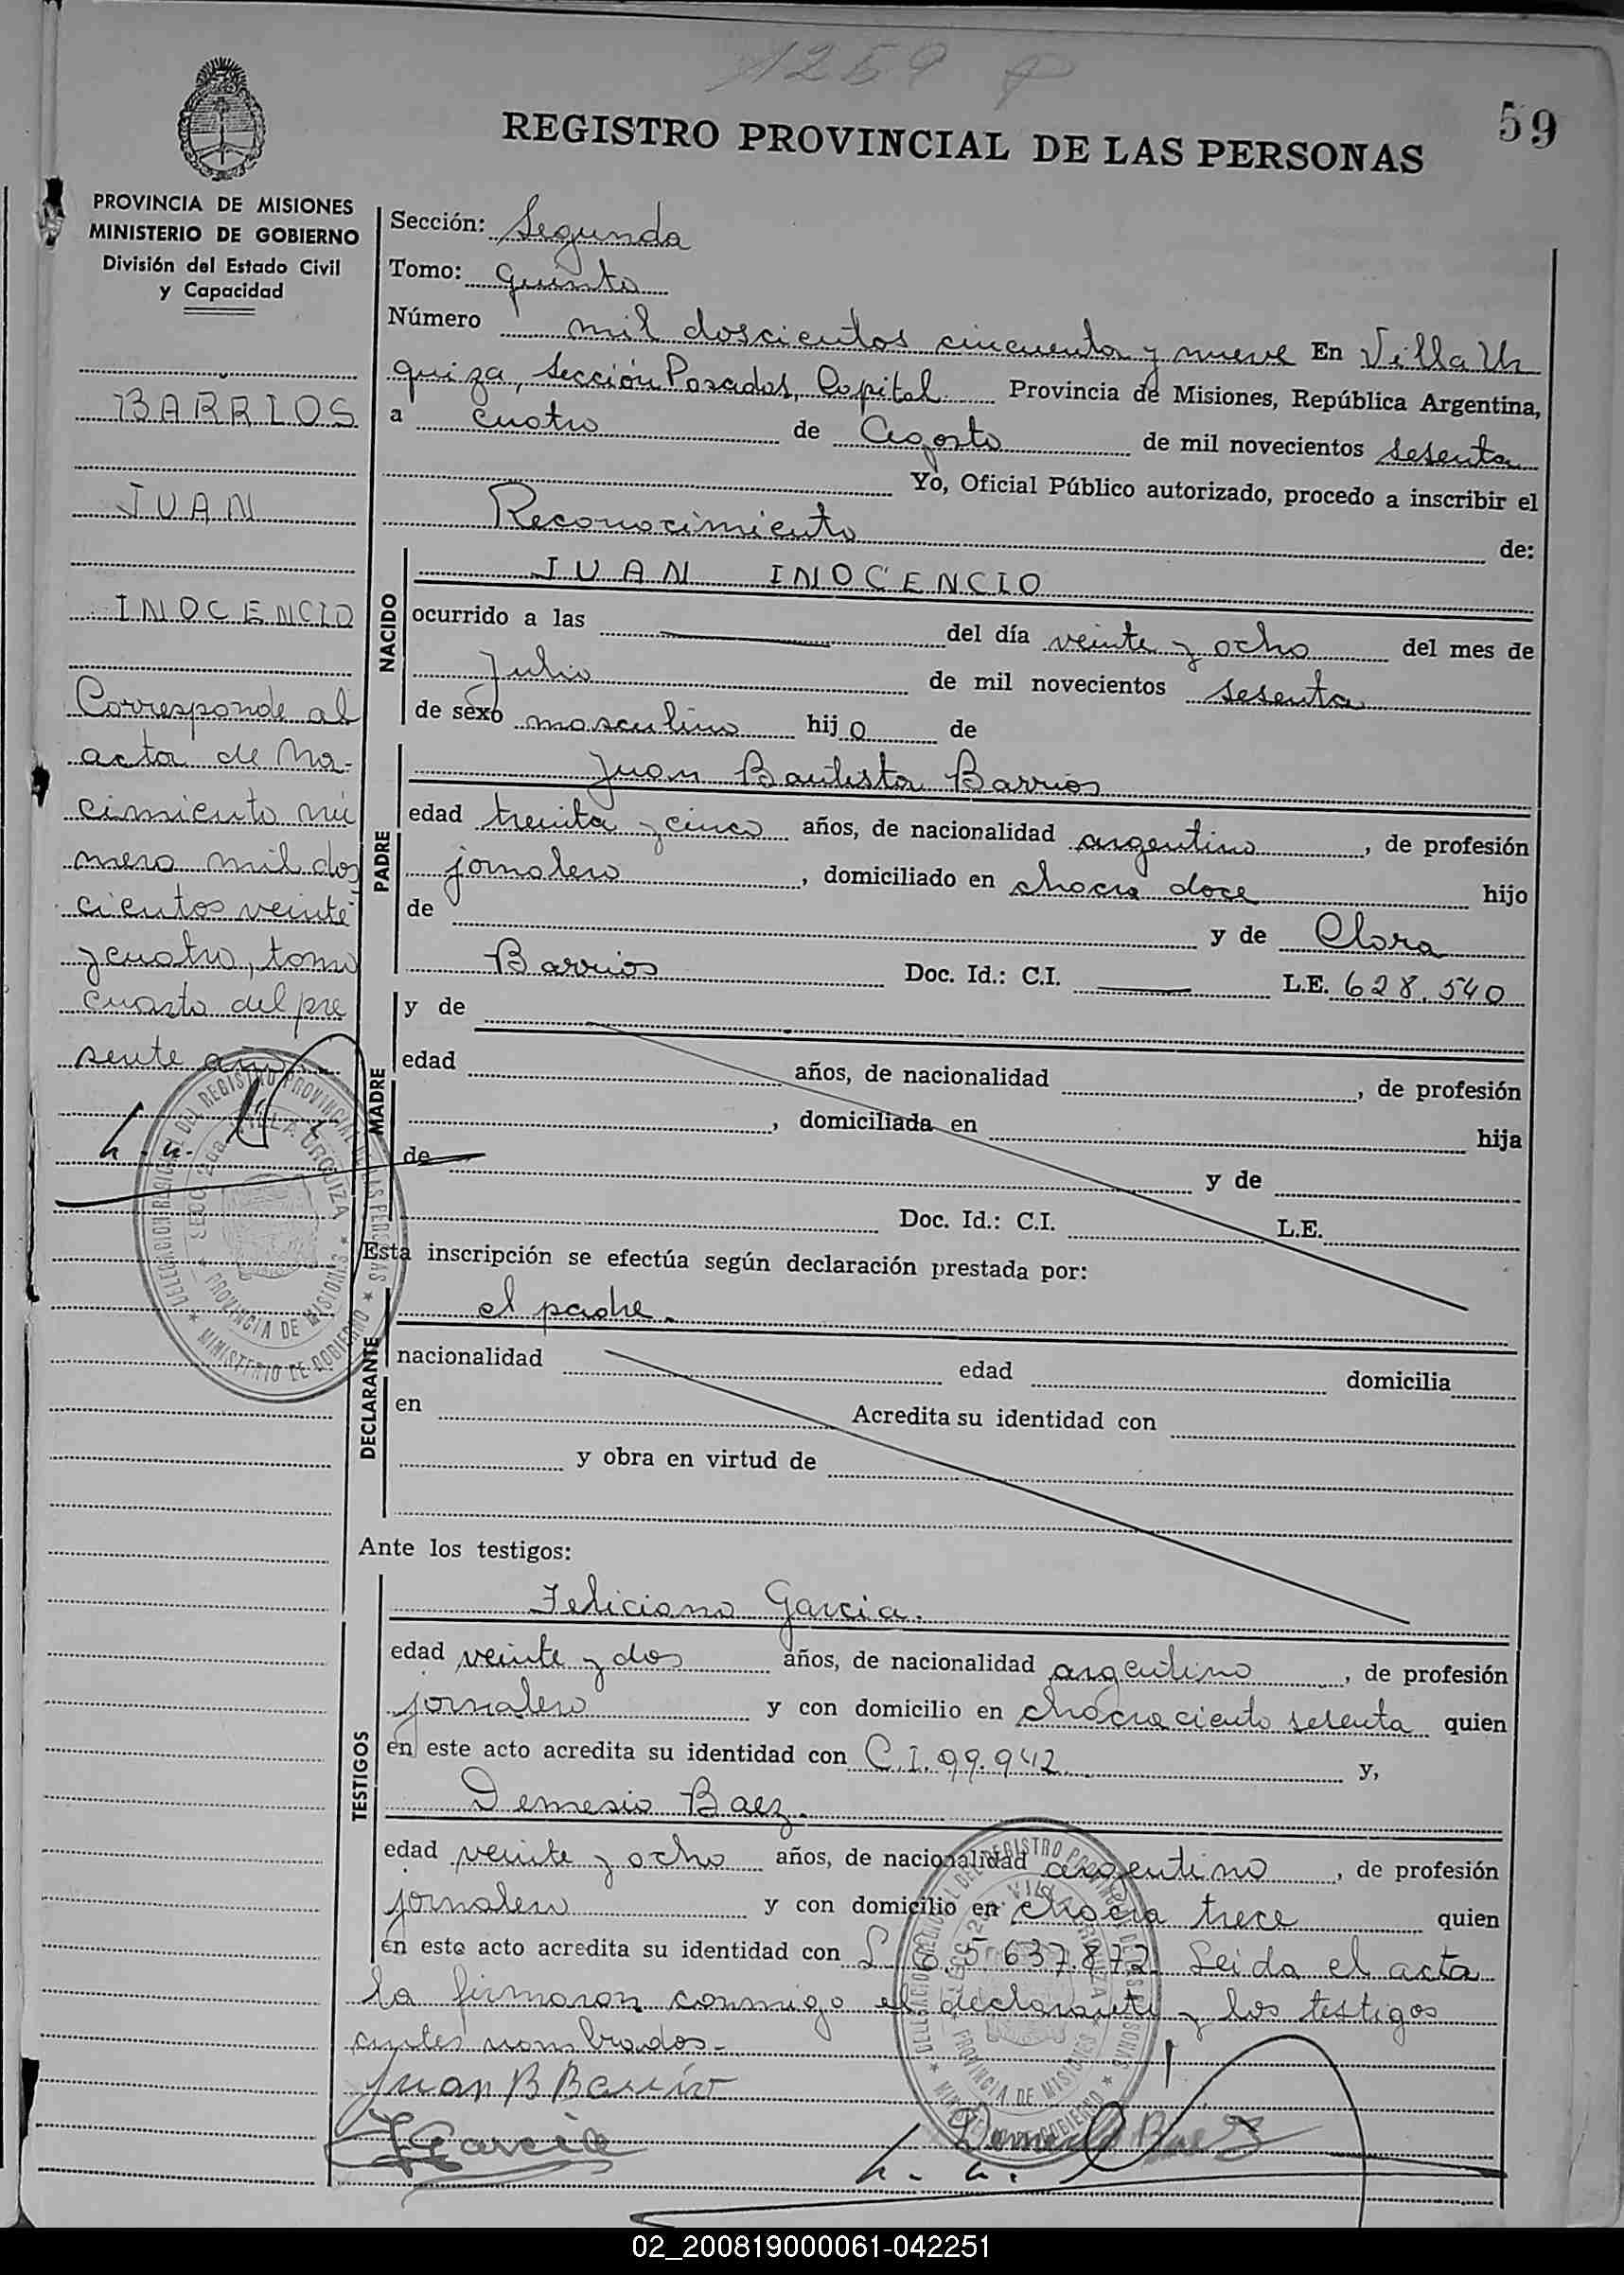 1259
59
REGISTRO PROVINCIAL DE LAS PERSONAS
PROVINCIA DE MISIONES
MINISTERIO DE GOBIERNO
División del Estado Civil
y Capacidad
BARRIOS
JUAN
INOCENCIO
Corresponde al
acta de Na-
cimiento nú
mero mil dos
cientos veinte
y cuatro, tomo
cuarto del pre
sente año
Sección: Segunda
Tomo: Quinto
Número mil doscientos cincuenta y nueve En Villa Ur
quiza, Sección Posadas, Capital Provincia de Misiones, República Argentina,
a cuatro de Agosto de mil novecientos sesenta
Yo, Oficial Público autorizado, procedo a inscribir el
Reconocimiento de:
NACIDO
JUAN INOCENCIO
ocurrido a las del día veinte y ocho del mes de
Julio de mil novecientos sesenta
de sexo masculino hijo de
PADRE
Juan Bautista Barrios
edad treinta y cinco años, de nacionalidad argentino, de profesión
jornalero, domiciliado en chacra doce hijo
de y de Clara
Barrios Doc. Id.: C.I. L.E. 628.540
MADRE
y de
edad años, de nacionalidad , de profesión
, domiciliada en hija
de y de
Doc. Id.: C.I. L.E.
Esta inscripción se efectúa según declaración prestada por:
DECLARANTE
el padre.
nacionalidad edad domicilia
en Acredita su identidad con
y obra en virtud de
Ante los testigos:
TESTIGOS
Feliciano Garcia.
edad veinte y dos años, de nacionalidad argentino, de profesión
jornalero y con domicilio en chacra ciento setenta quien
en este acto acredita su identidad con C.I. 99.942 y,
Demesio Baez.
edad veinte y ocho años, de nacionalidad argentino, de profesión
jornalero y con domicilio en chacra trece quien
en este acto acredita su identidad con 5.637.872 Leida el acta
la firmaron conmigo el declarante y los testigos
antes nombrados.-
Juan B Barrios
F Garcia
Baez
DELEGACION REGIONAL DEL REGISTRO PROVINCIAL DE LAS PERSONAS
SECC. 2da. VILLA URQUIZA
PROVINCIA DE MISIONES
MINISTERIO DE GOBIERNO
02_200819000061-042251